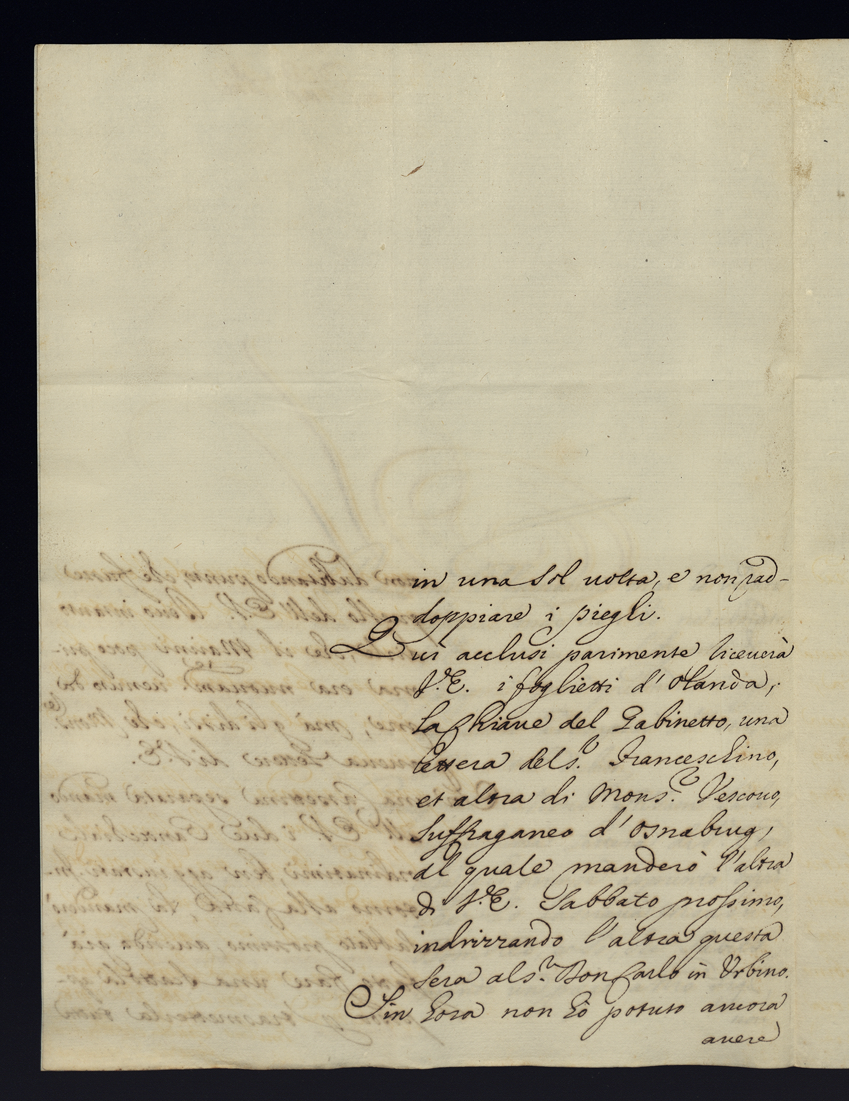 in una sol uolta, e non rad-
doppiare i piegli.
Qui acclusi parimente riceuerà
V.E. i foglietti d'Olanda,
la chiaue del Gabinetto, una
lettera del S.r Franceschino,
et altra di Mons.r Vescouo
Suffraganeo d'Osnabrug,
al quale manderò l'altra
di V.E. Sabbato prossimo,
indrizzando l'altra questa
sera al S.r Don Carlo in Urbino.
Sin hora non hò potuto ancora
auere